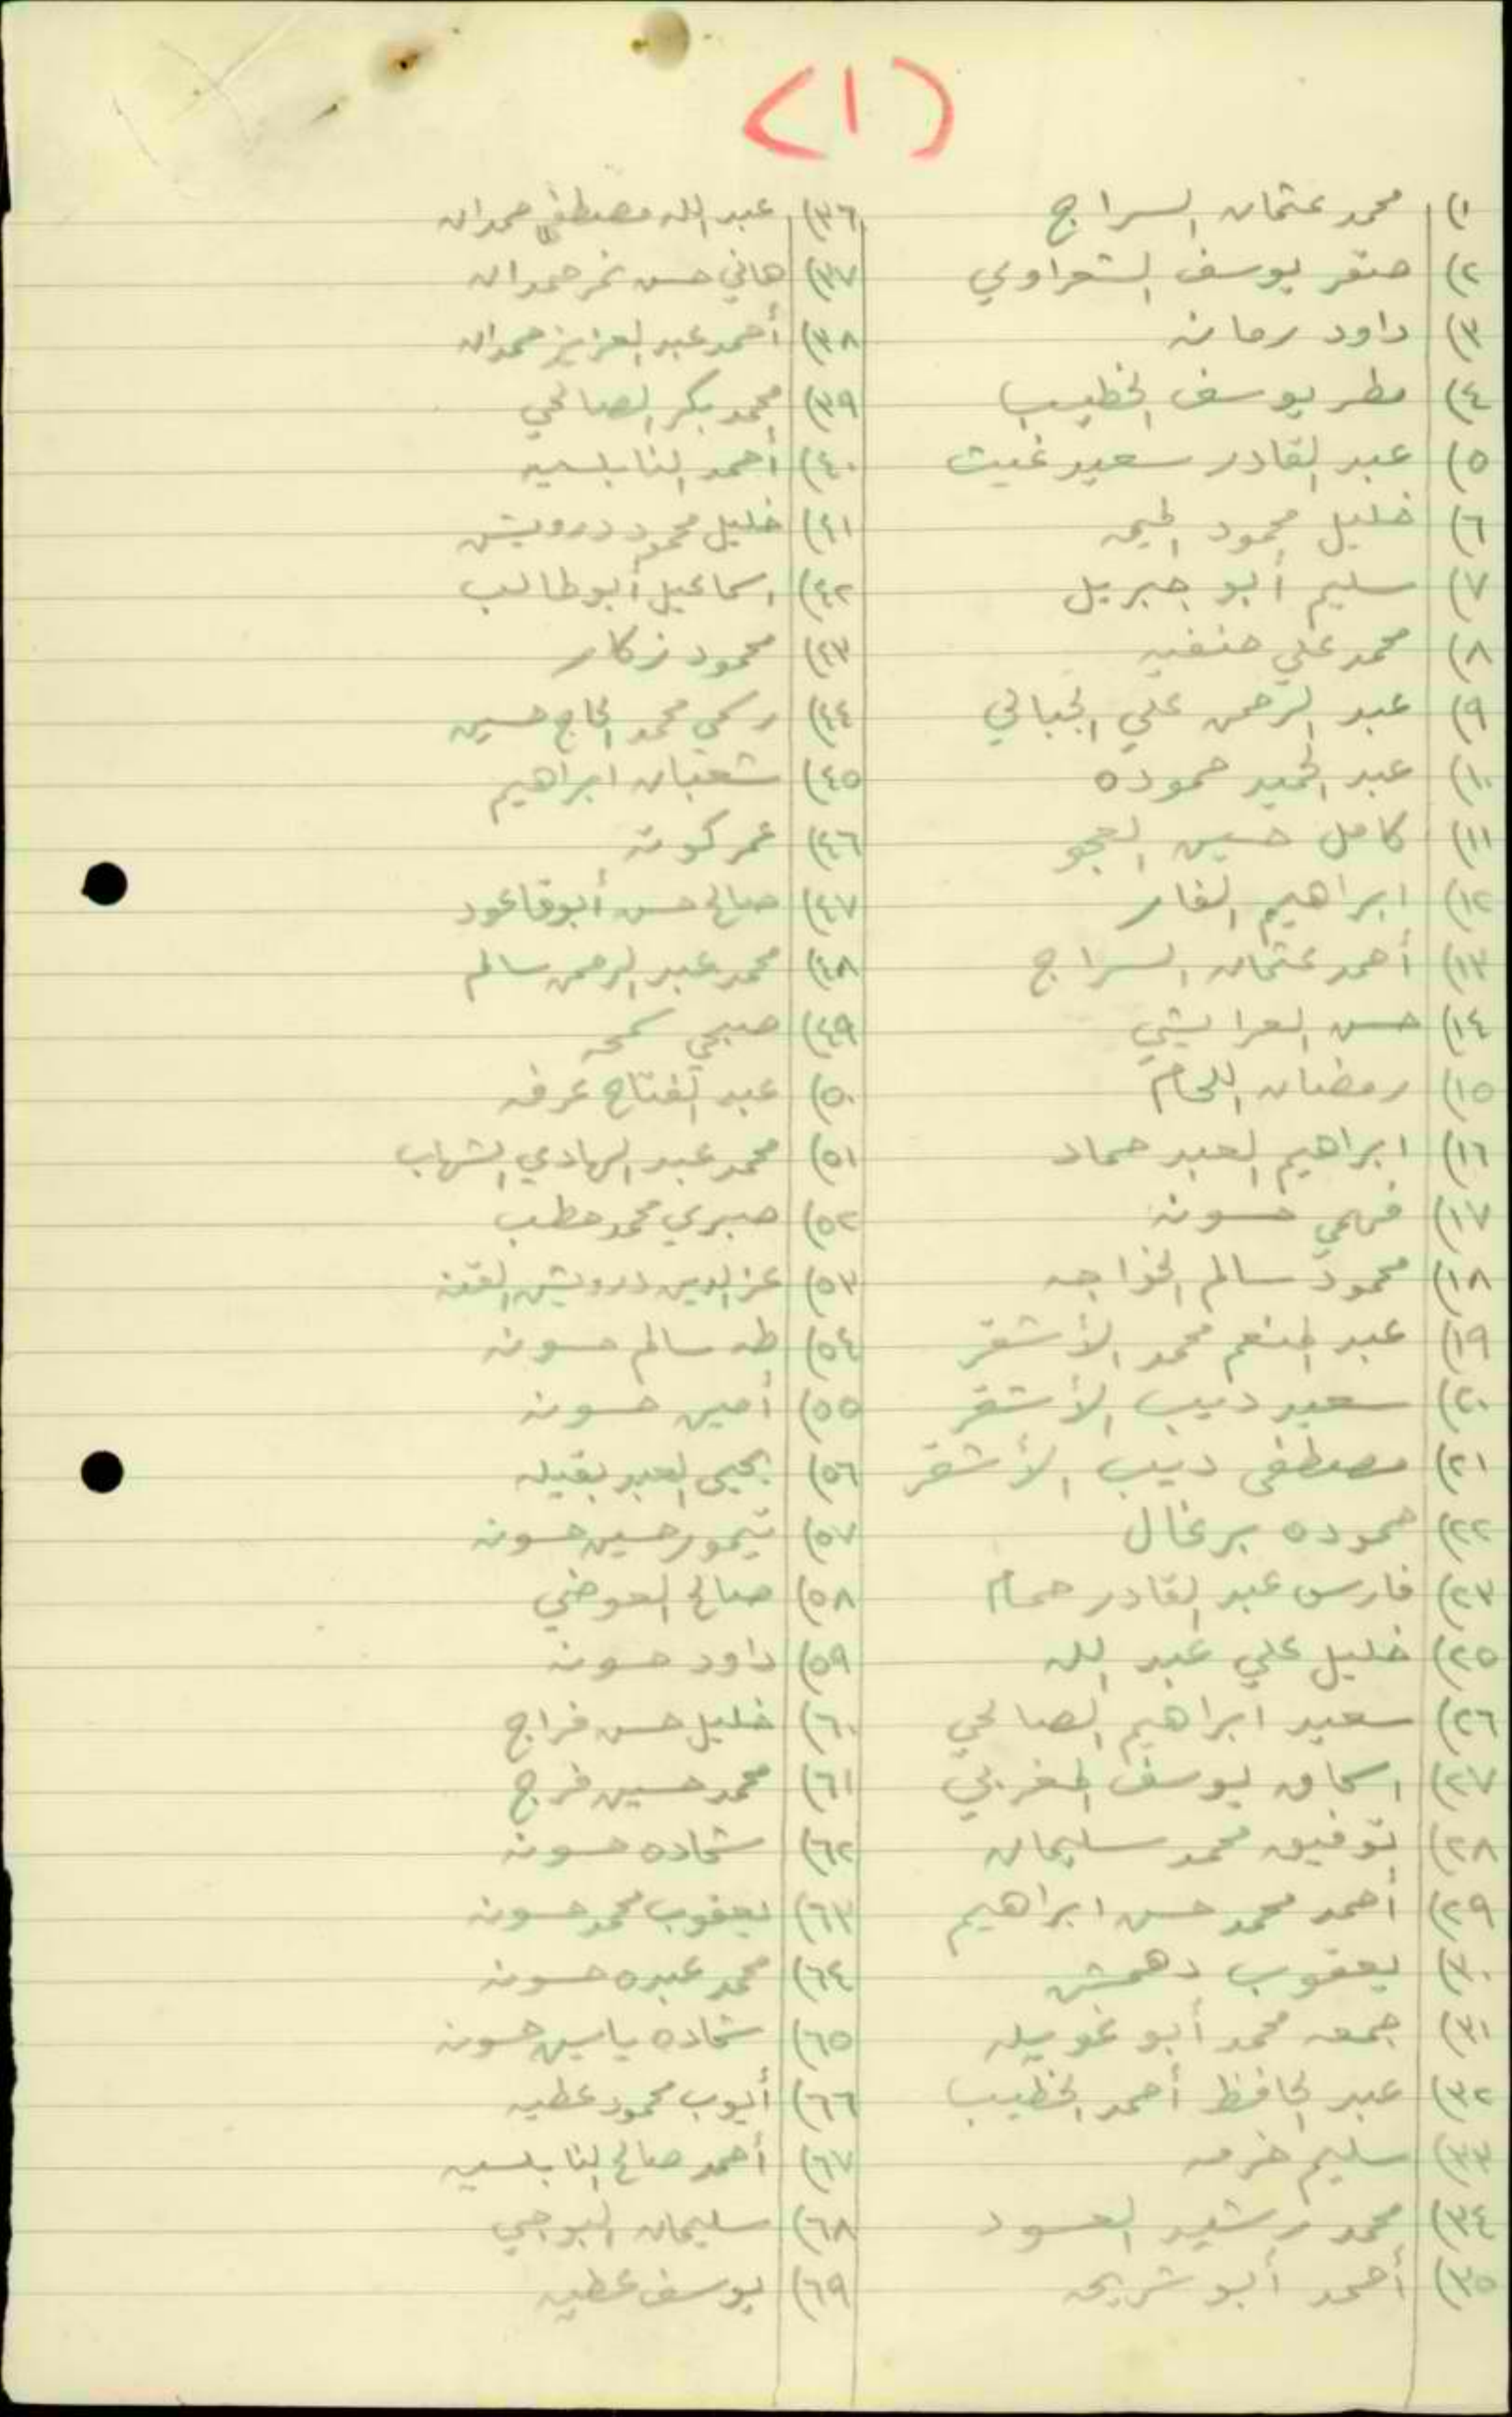 (١)
١) محمد عثمان السراج
٢) صقر يوسف الشعراوي
٣) داود رمانه
٤) مطر يوسف الخطيب
٥) عبد القادر سعيد غيث
٦) خليل محمود
٧) سليم أبو جبريل
٨) محمد علي حنفيه
٩) عبد الرحمن علي الجبالي
١٠) عبد الحميد حموده
١١) كامل حسين العجو
١٢) ابراهيم الفار
١٣) أحمد عثمان السراج
١٤) حسن العرايشي
١٥) رمضان اللحام
١٦) ابراهيم العبد حماد
١٧) فهمي حسونه
١٨) محمود سالم الخواجه
١٩) عبد المنعم محمد الأشقر
٢٠) سعيد ديب الأشقر
٢١) مصطفى ديب الأشقر
٢٢) حموده برغال
٢٣) فارس عبد القادر حمام
٢٥) خليل علي عبد الله
٢٦) سعيد ابراهيم الصالحي
٢٧) اسحاق يوسف المغربي
٢٨) توفيق محمد سليمان
٢٩) أحمد محمد حسن ابراهيم
٣٠) يعقوب دهمش
٣١) جمعه محمد أبو غويله
٣٢) عبد الحافظ أحمد الخطيب
٣٣) سليم خرمه
٣٤) محمد رشيد العسود
٣٥) أحمد أبو شريحه
٣٦) عبد الله مصطفى حمدان
٣٧) هاني حسن نمر حمدان
٣٨) أحمد عبد العزيز حمدان
٣٩) محمد بكر الصالحي
٤٠) أحمد النابلسيه
٤١) خليل محمود درويش
٤٢) اسماعيل أبو طالب
٤٣) محمود زكار
٤٤) رسمي محمد الحاج حسين
٤٥) شعبان ابراهيم
٤٦) عمر كوته
٤٧) صالح حسن أبوقاعود
٤٨) محمد عبد الرحمن سالم
٤٩) صبحي
٥٠) عبد الفتاح عرفه
٥١) محمد عبد الهادي الشهاب
٥٢) صبري محمد حطب
٥٣) عز الدين درويش
٥٤) طه سالم حسونه
٥٥) أمين حسونه
٥٦) يحيى العبد بقيله
٥٧) تيمور حسين حسونه
٥٨) صالح العوضي
٥٩) داود حسونه
٦٠) خليل حسن فراج
٦١) محمد حسين فرج
٦٢) شحاده حسونه
٦٣) يعقوب محمد حسونه
٦٤) محمد عبده حسونه
٦٥) شحاده ياسين حسونه
٦٦) أيوب محمود عطيه
٦٧) أحمد صالح النابلسيه
٦٨) سليمان البوجي
٦٩) يوسف عطيه